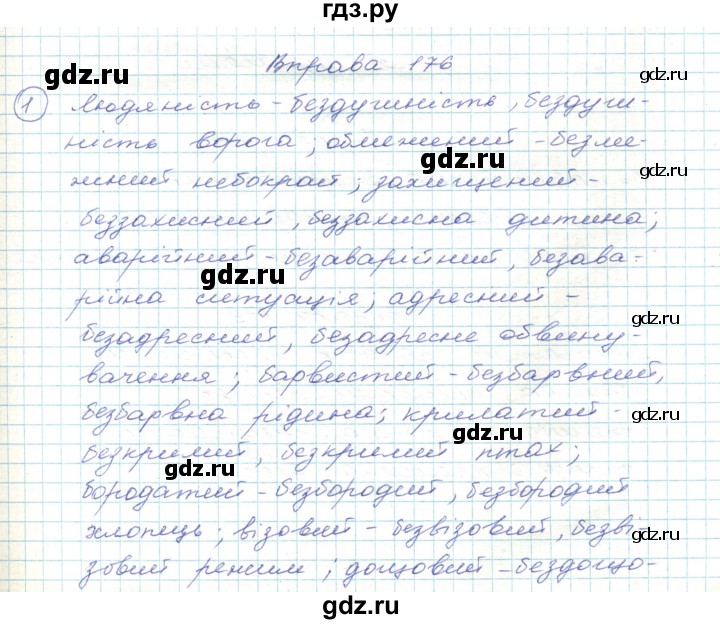 гдз.ру
gdz.ru
Вправа 176
1 людяність - бездушність, бездуш-
gdz.ru
ність ворога; обмежений - безме-
gdz.ru
жний небокрай; захищений -
беззахисний, беззахисна дитина;
аварійний - безаварійний, безава-
gdz.ru
gdz.ru
рійна ситуація; адресний -
gdz.ru
безадресний, безадресне обвину-
вачення; барвистий - безбарвний,
безбарвна рідина; крилатий -
gdz.ru
безкрилий, безкрилий птах;
gdz.ru
бородатий - безбородий, безбородий
хлопець; візовий - безвізовий, безві-
gdz.ru
зовий режим; дощовий - бездощо-
gdz.ru